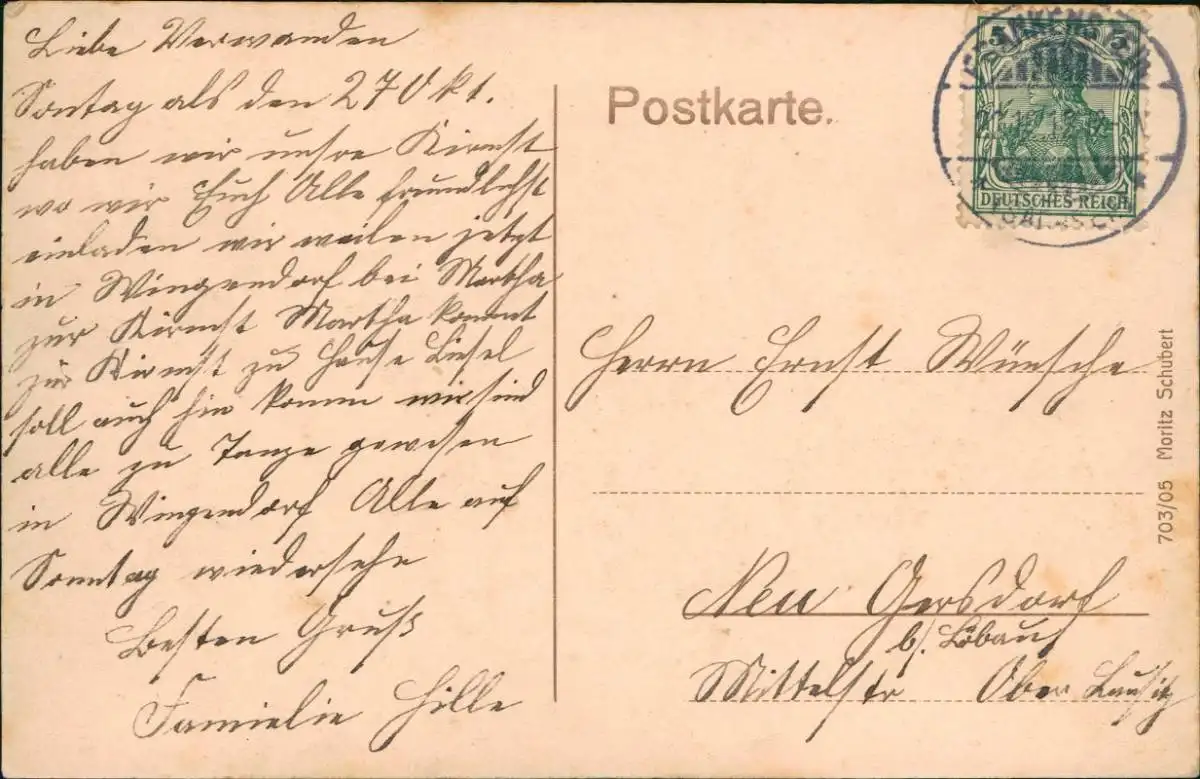 Liebe Verwanden
Sontag als den 27 Okt.
haben wir unsre Kirmst
wo wir Euch Alle freundlichst
einladen wir weilen jetzt
in Wingendorf bei Martha
zur Kirmst Martha kommt
zur Kirmst zu Hause Liesel
soll auch hin komm wir sind
alle zu Tanze gewesen
in Wingendorf Alle auf
Sonntag wiedersehn
Besten Gruß
Familie Hille
Postkarte.
5 5
DEUTSCHES REICH
Herrn Ernst Wünsche
Neu Gersdorf
b/. Löbau
Mittelstr Ober Lausitz
703/05 Moritz Schubert